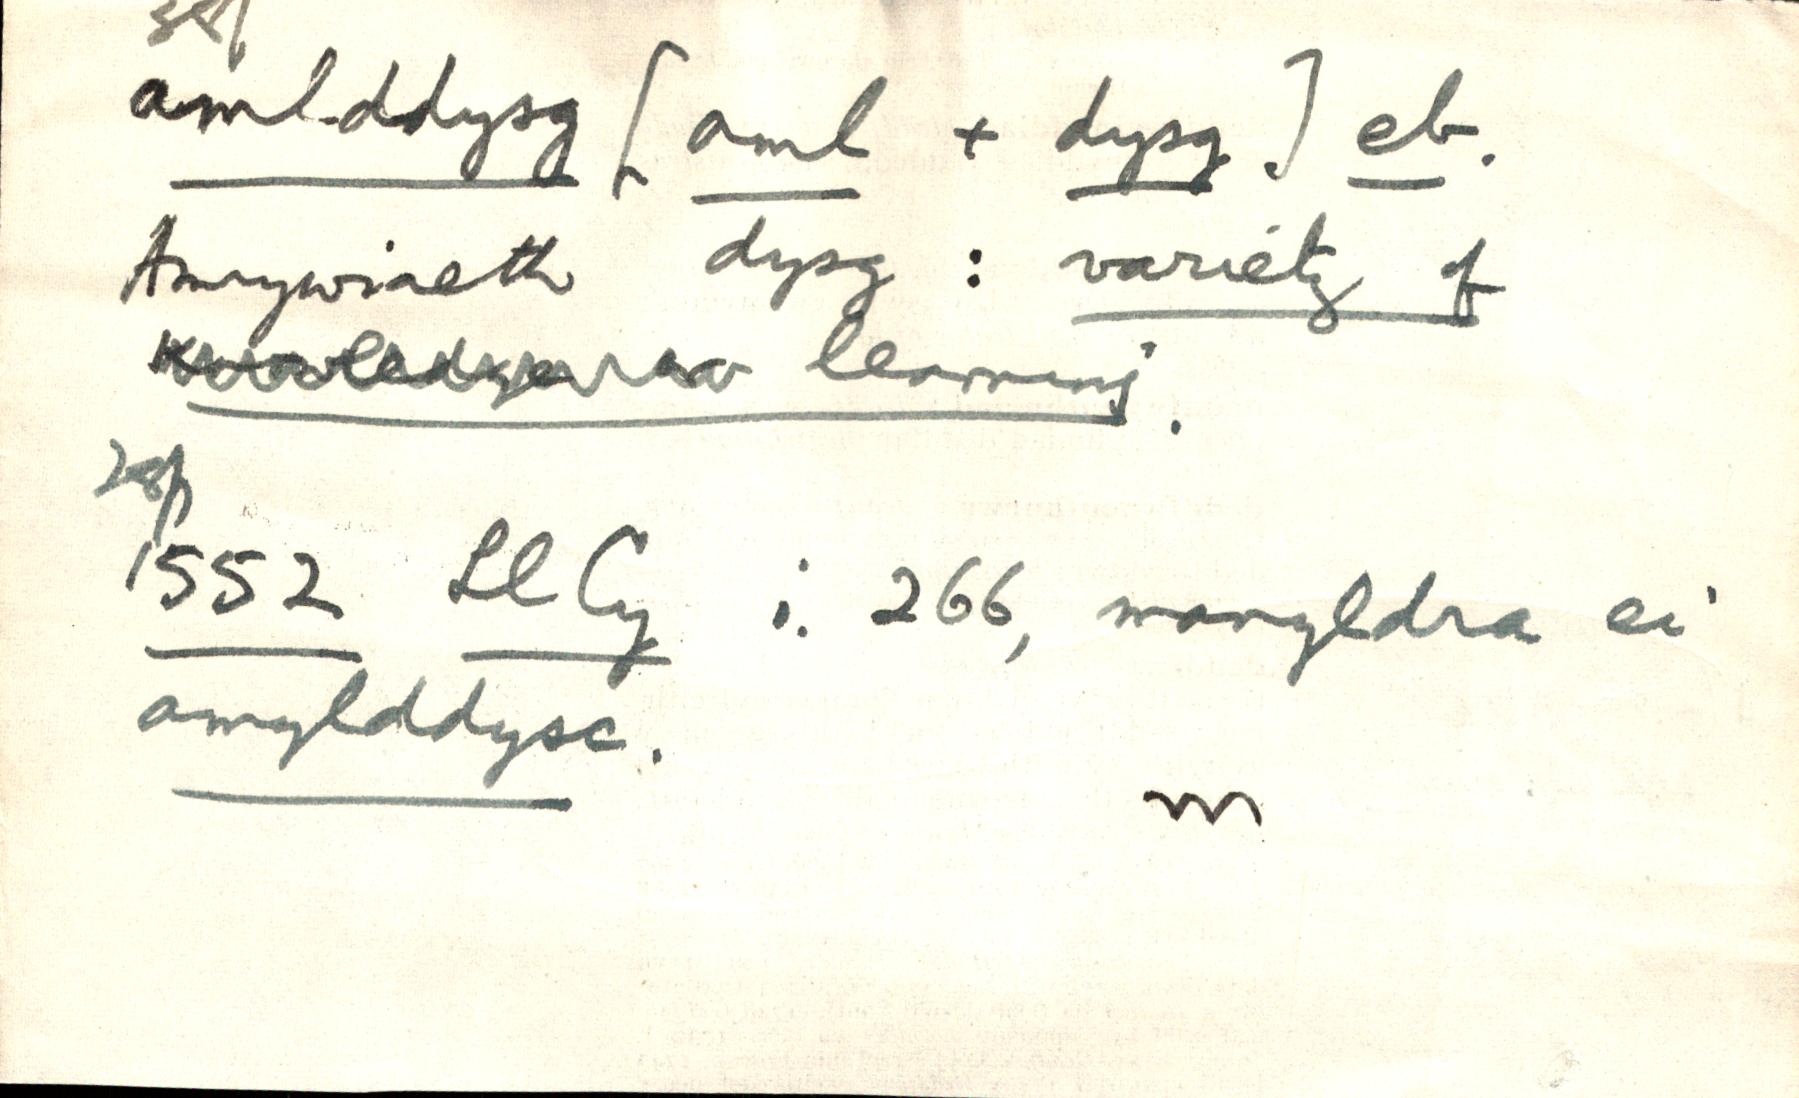 amlddysg [aml + dysg.] eb.
Amrywiaeth dysg : variety of
learning.
1552 Ll Cy i. 266, manyldra ei
amylddysc.
m